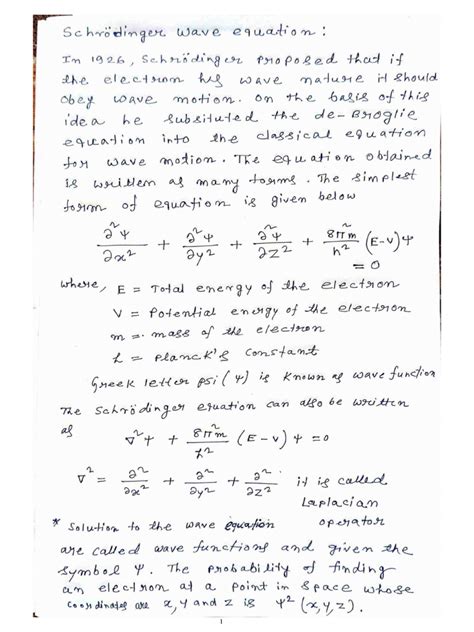 Schrödinger wave equation:
In 1926, Schrödinger proposed that if
the electron has wave nature it should
obey wave motion. On the basis of this
idea he subsituted the de-Broglie
equation into the classical equation
for wave motion. The equation obtained
is written as many forms. The simplest
form of equation is given below
∂²Ψ/∂x² + ∂²Ψ/∂y² + ∂²Ψ/∂z² + 8π²m/h² (E-V)Ψ
= 0
where, E = Total energy of the electron
V = Potential energy of the electron
m = mass of the electron
h = planck's constant
Greek letter psi (Ψ) is known as wave function
The Schrödinger equation can also be written
as ∇²Ψ + 8π²m/h² (E-V) Ψ = 0
∇² = ∂²/∂x² + ∂²/∂y² + ∂²/∂z² it is called
Laplacian
operator
* Solution to the wave equation
are called wave functions and given the
symbol Ψ. The probability of finding
an electron at a point in space whose
coordinates are x, y and z is Ψ² (x, y, z).
1